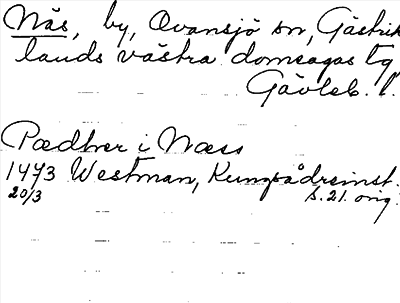 Näs, by, Ovansjö sn, Gästrik
lands västra domsagas tg
Gävleb. l.
Pædher i Næss
1473 Westman, Kungsådreinst.
20/3 s. 21. orig.